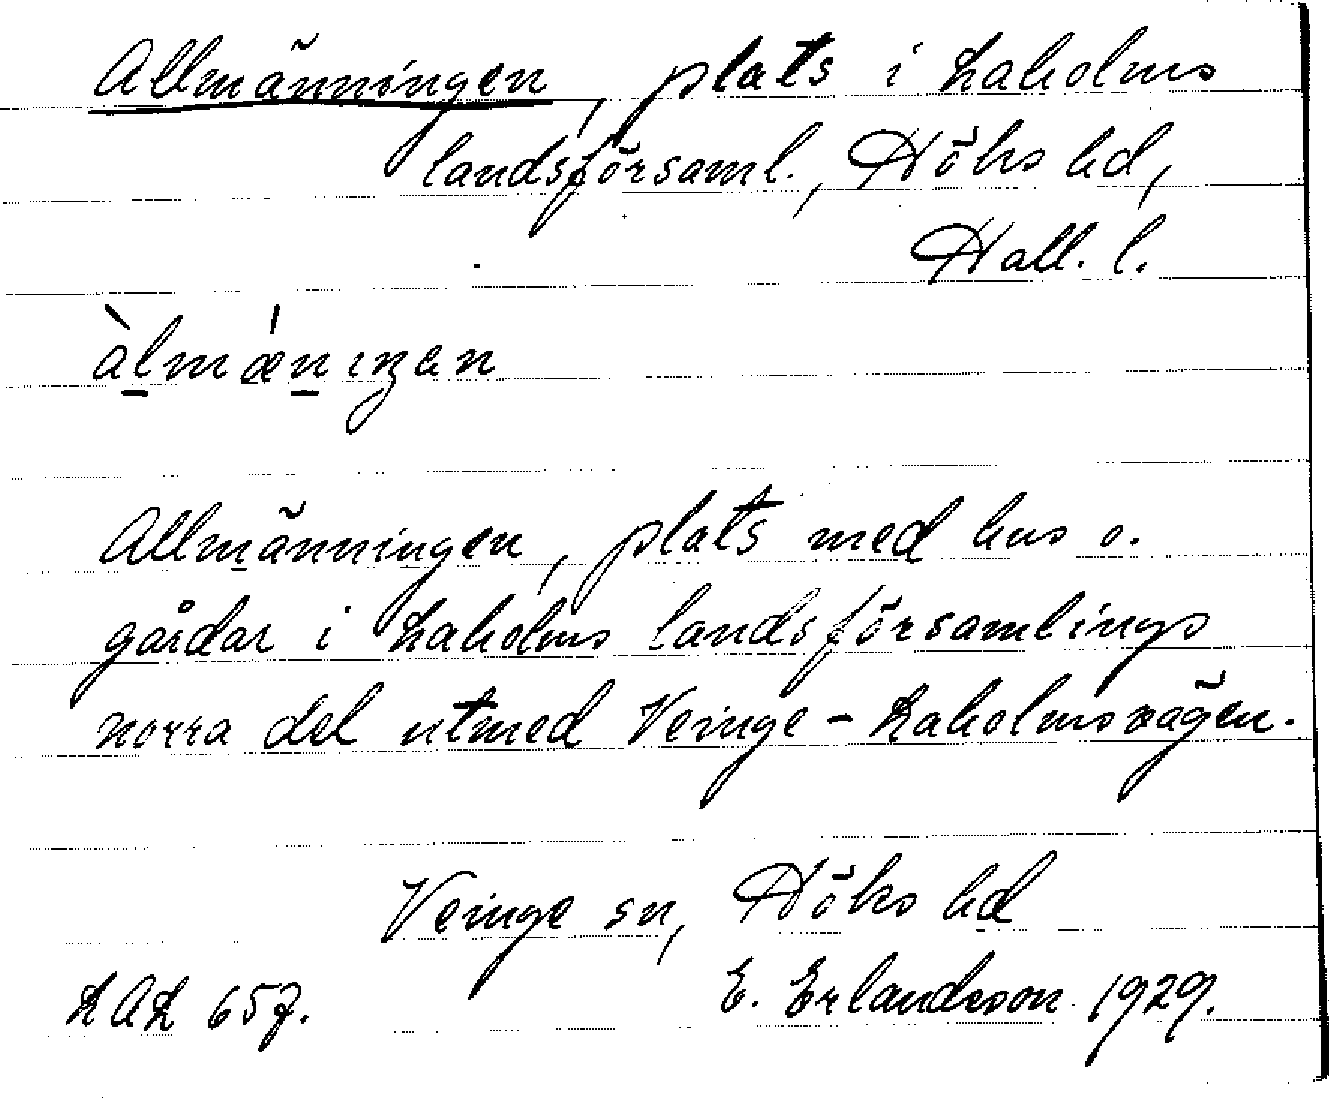 Allmänningen, plats i Laholms
landsförsaml., Höks hd,
Hall. l.
àlmǽnıŋen
Allmänningen, plats med hus o.
gårdar i Laholms landsförsamlings
norra del utmed Veinge-Laholmsvägen.
Veinge sn, Höks hd
LAL 657. E. Erlandsson 1929.